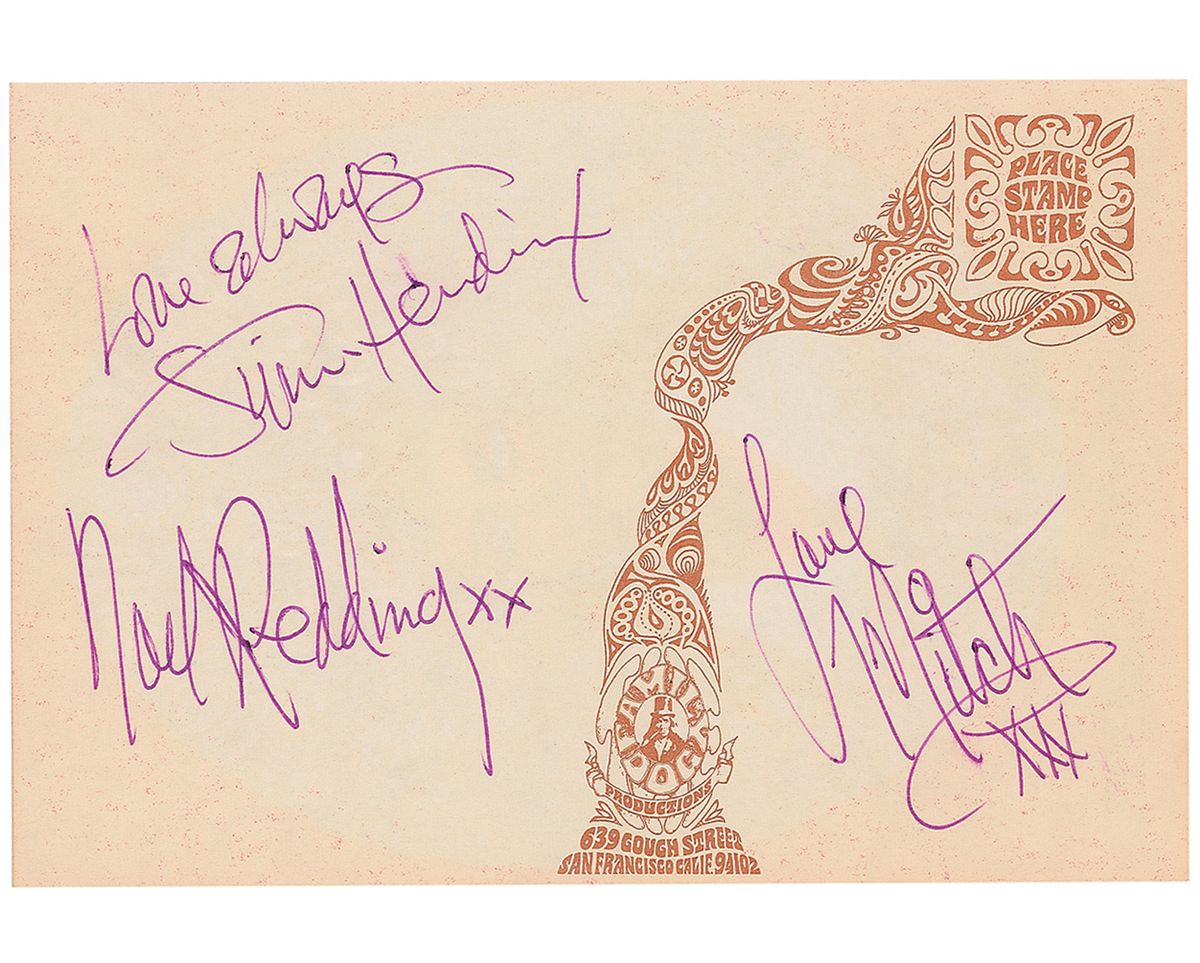 Love Always
Jimi Hendrix
Noel Redding xx
PLACE
STAMP
HERE
Love
Mitch
xxx
FAMILY
DOG
PRODUCTIONS
639 GOUGH STREET
SAN FRANCISCO CALIF. 94102